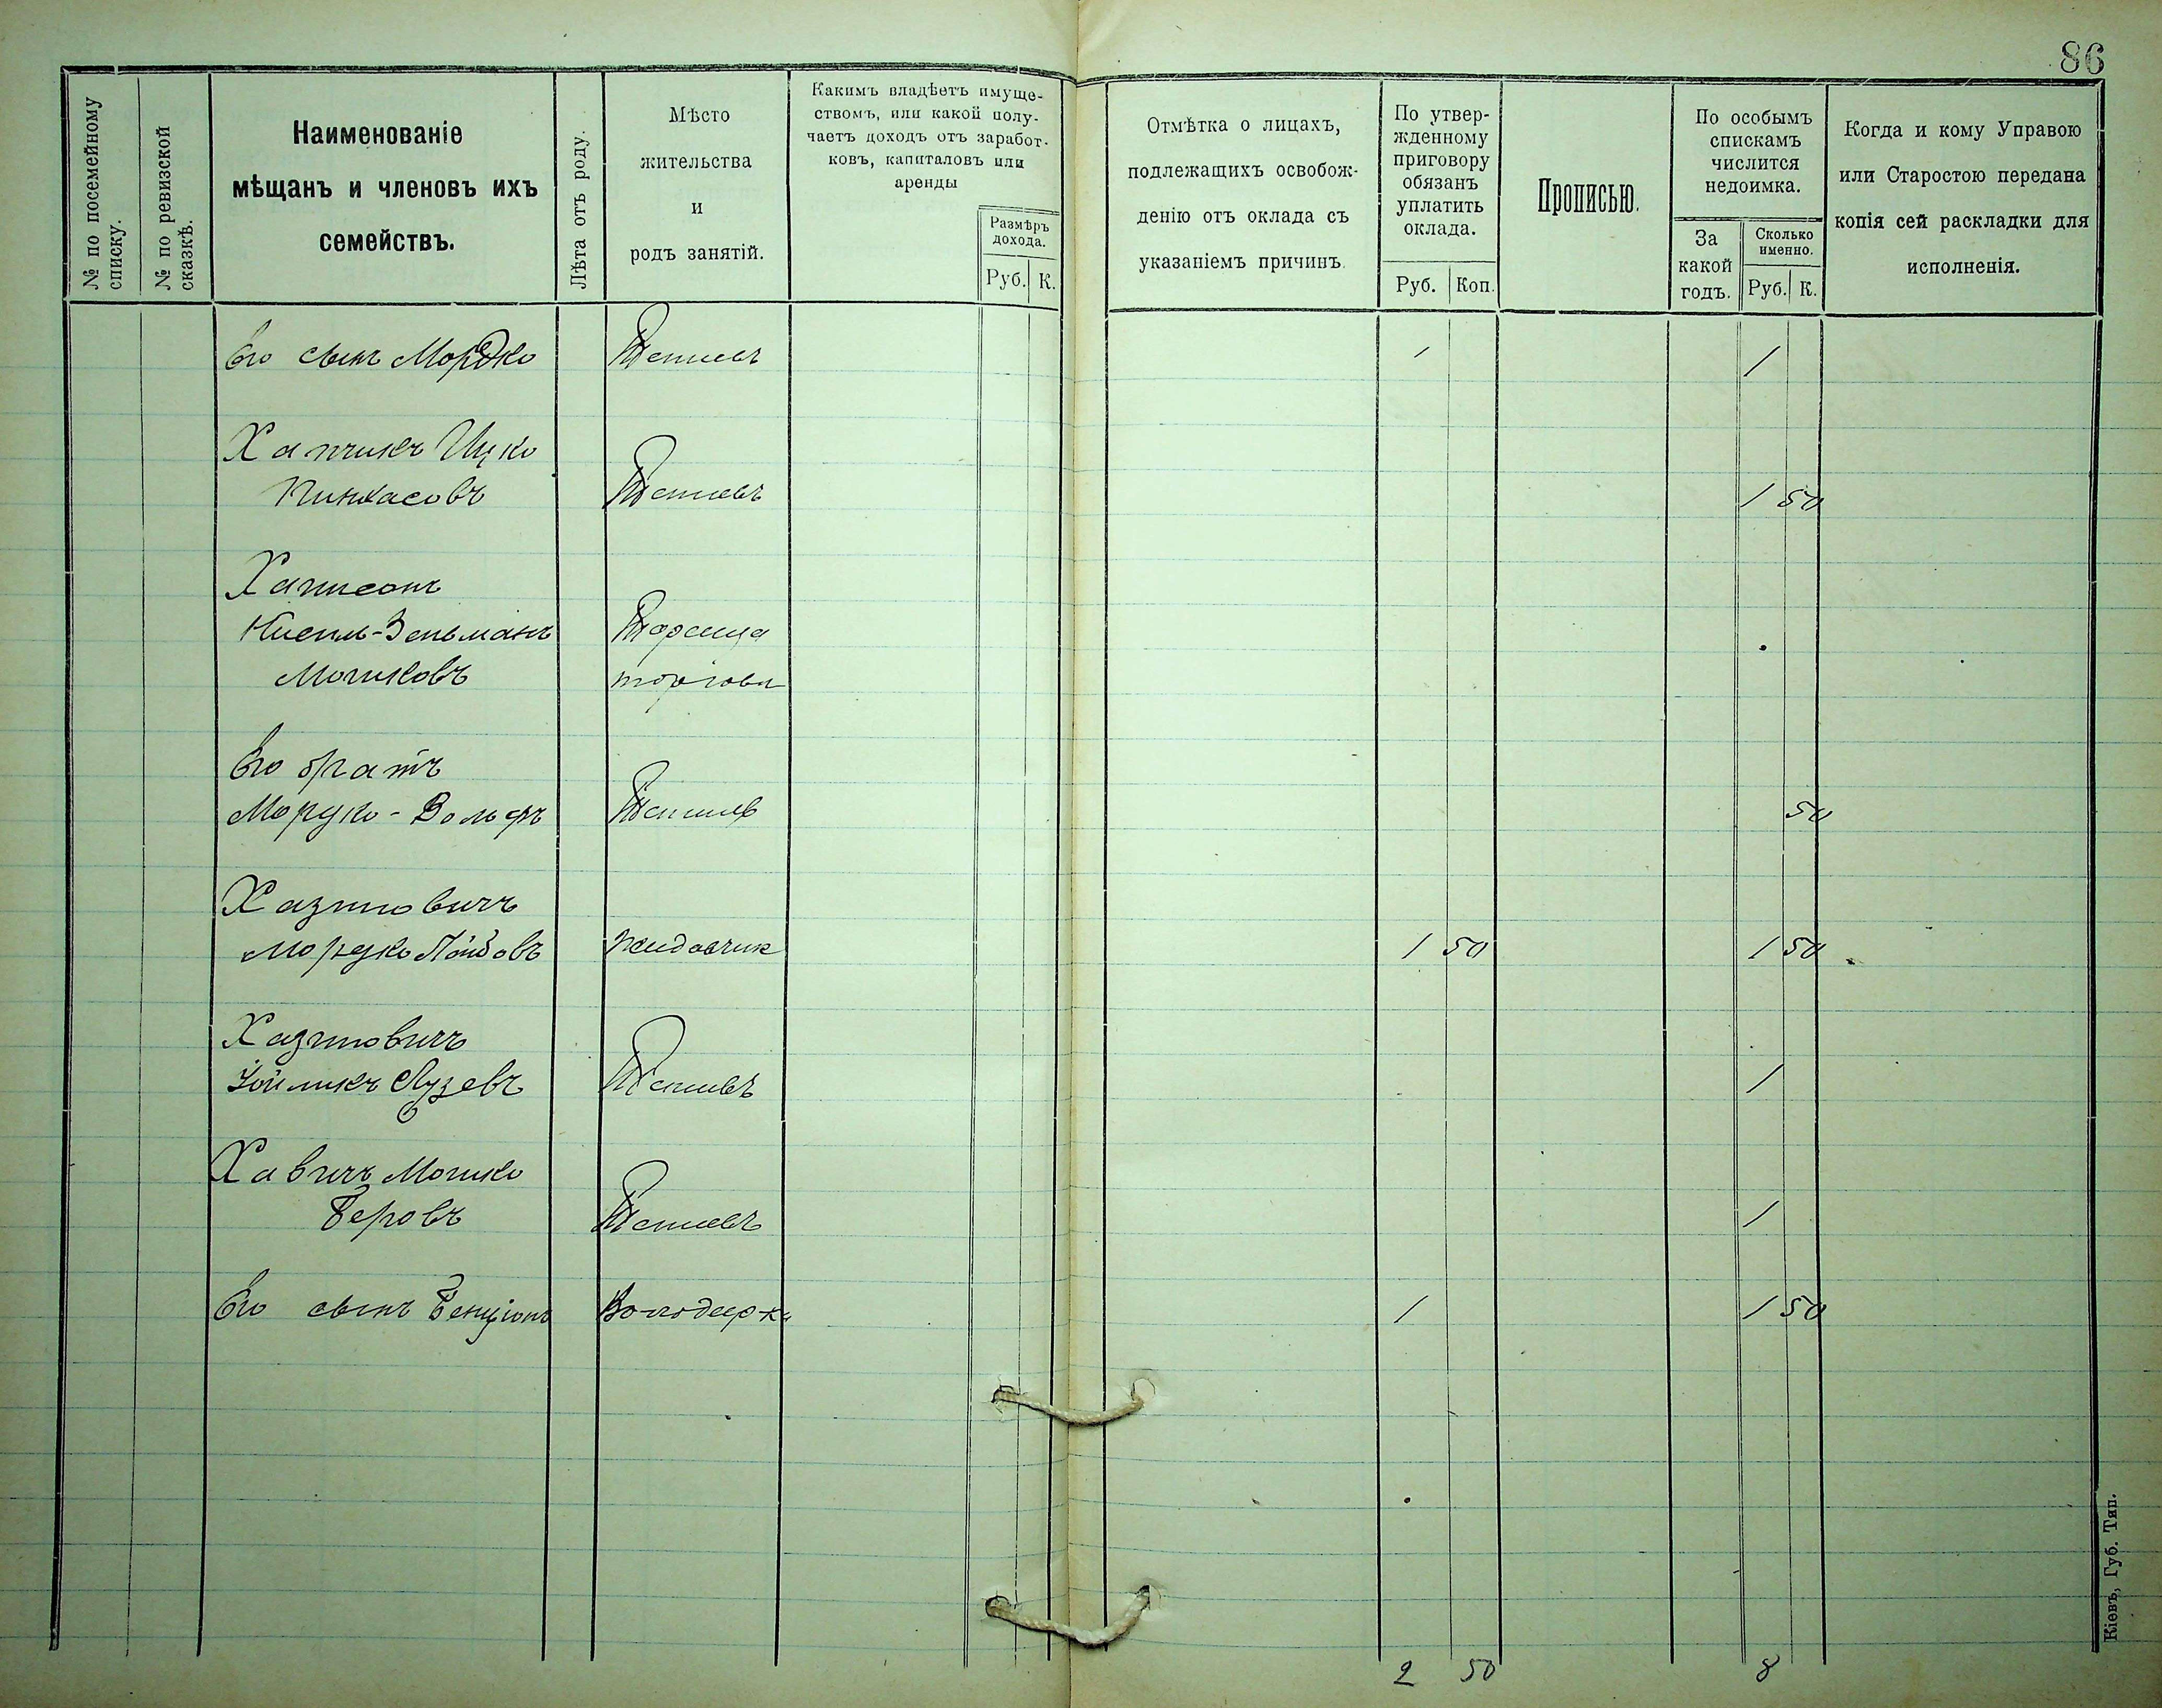 86
№ по посемейному списку.
№ по ревизской сказкѣ.
Наименованіе
мѣщанъ и членовъ ихъ
семействъ.
Лѣта отъ роду.
Мѣсто
жительства
и
родъ занятій.
Какимъ владѣетъ имуще-
ствомъ, или какой полу-
чаетъ доходъ отъ заработ-
ковъ, капиталовъ или
аренды
Размѣръ
дохода.
Руб. К.
Отмѣтка о лицахъ,
подлежащихъ освобож-
денію отъ оклада съ
указаніемъ причинъ.
По утвер-
жденному
приговору
обязанъ
уплатить
оклада.
Руб. Коп.
Прописью.
По особымъ
спискамъ
числится
недоимка.
За
какой
годъ.
Сколько
именно.
Руб. К.
Когда и кому Управою
или Старостою передана
копія сей раскладки для
исполненія.
Его сынъ Мордко Тетіевъ 1 1
Хапчикъ Ицко
Пинхасовъ Тетіевъ 1 50
Мошковъ
Его братъ
Мордко-Вольфъ Тетіевъ 50
Хазиновичъ
Мордко Лейбовъ Жидовчик 1 50 1 50
Хазиновичъ
Тетіевъ 1
Хавичъ Мошко
Беровъ Тетіевъ 1
Его сынъ Бенціонъ Володарка 1 1 50
2 50 8
Кіевъ, Губ. Тип.